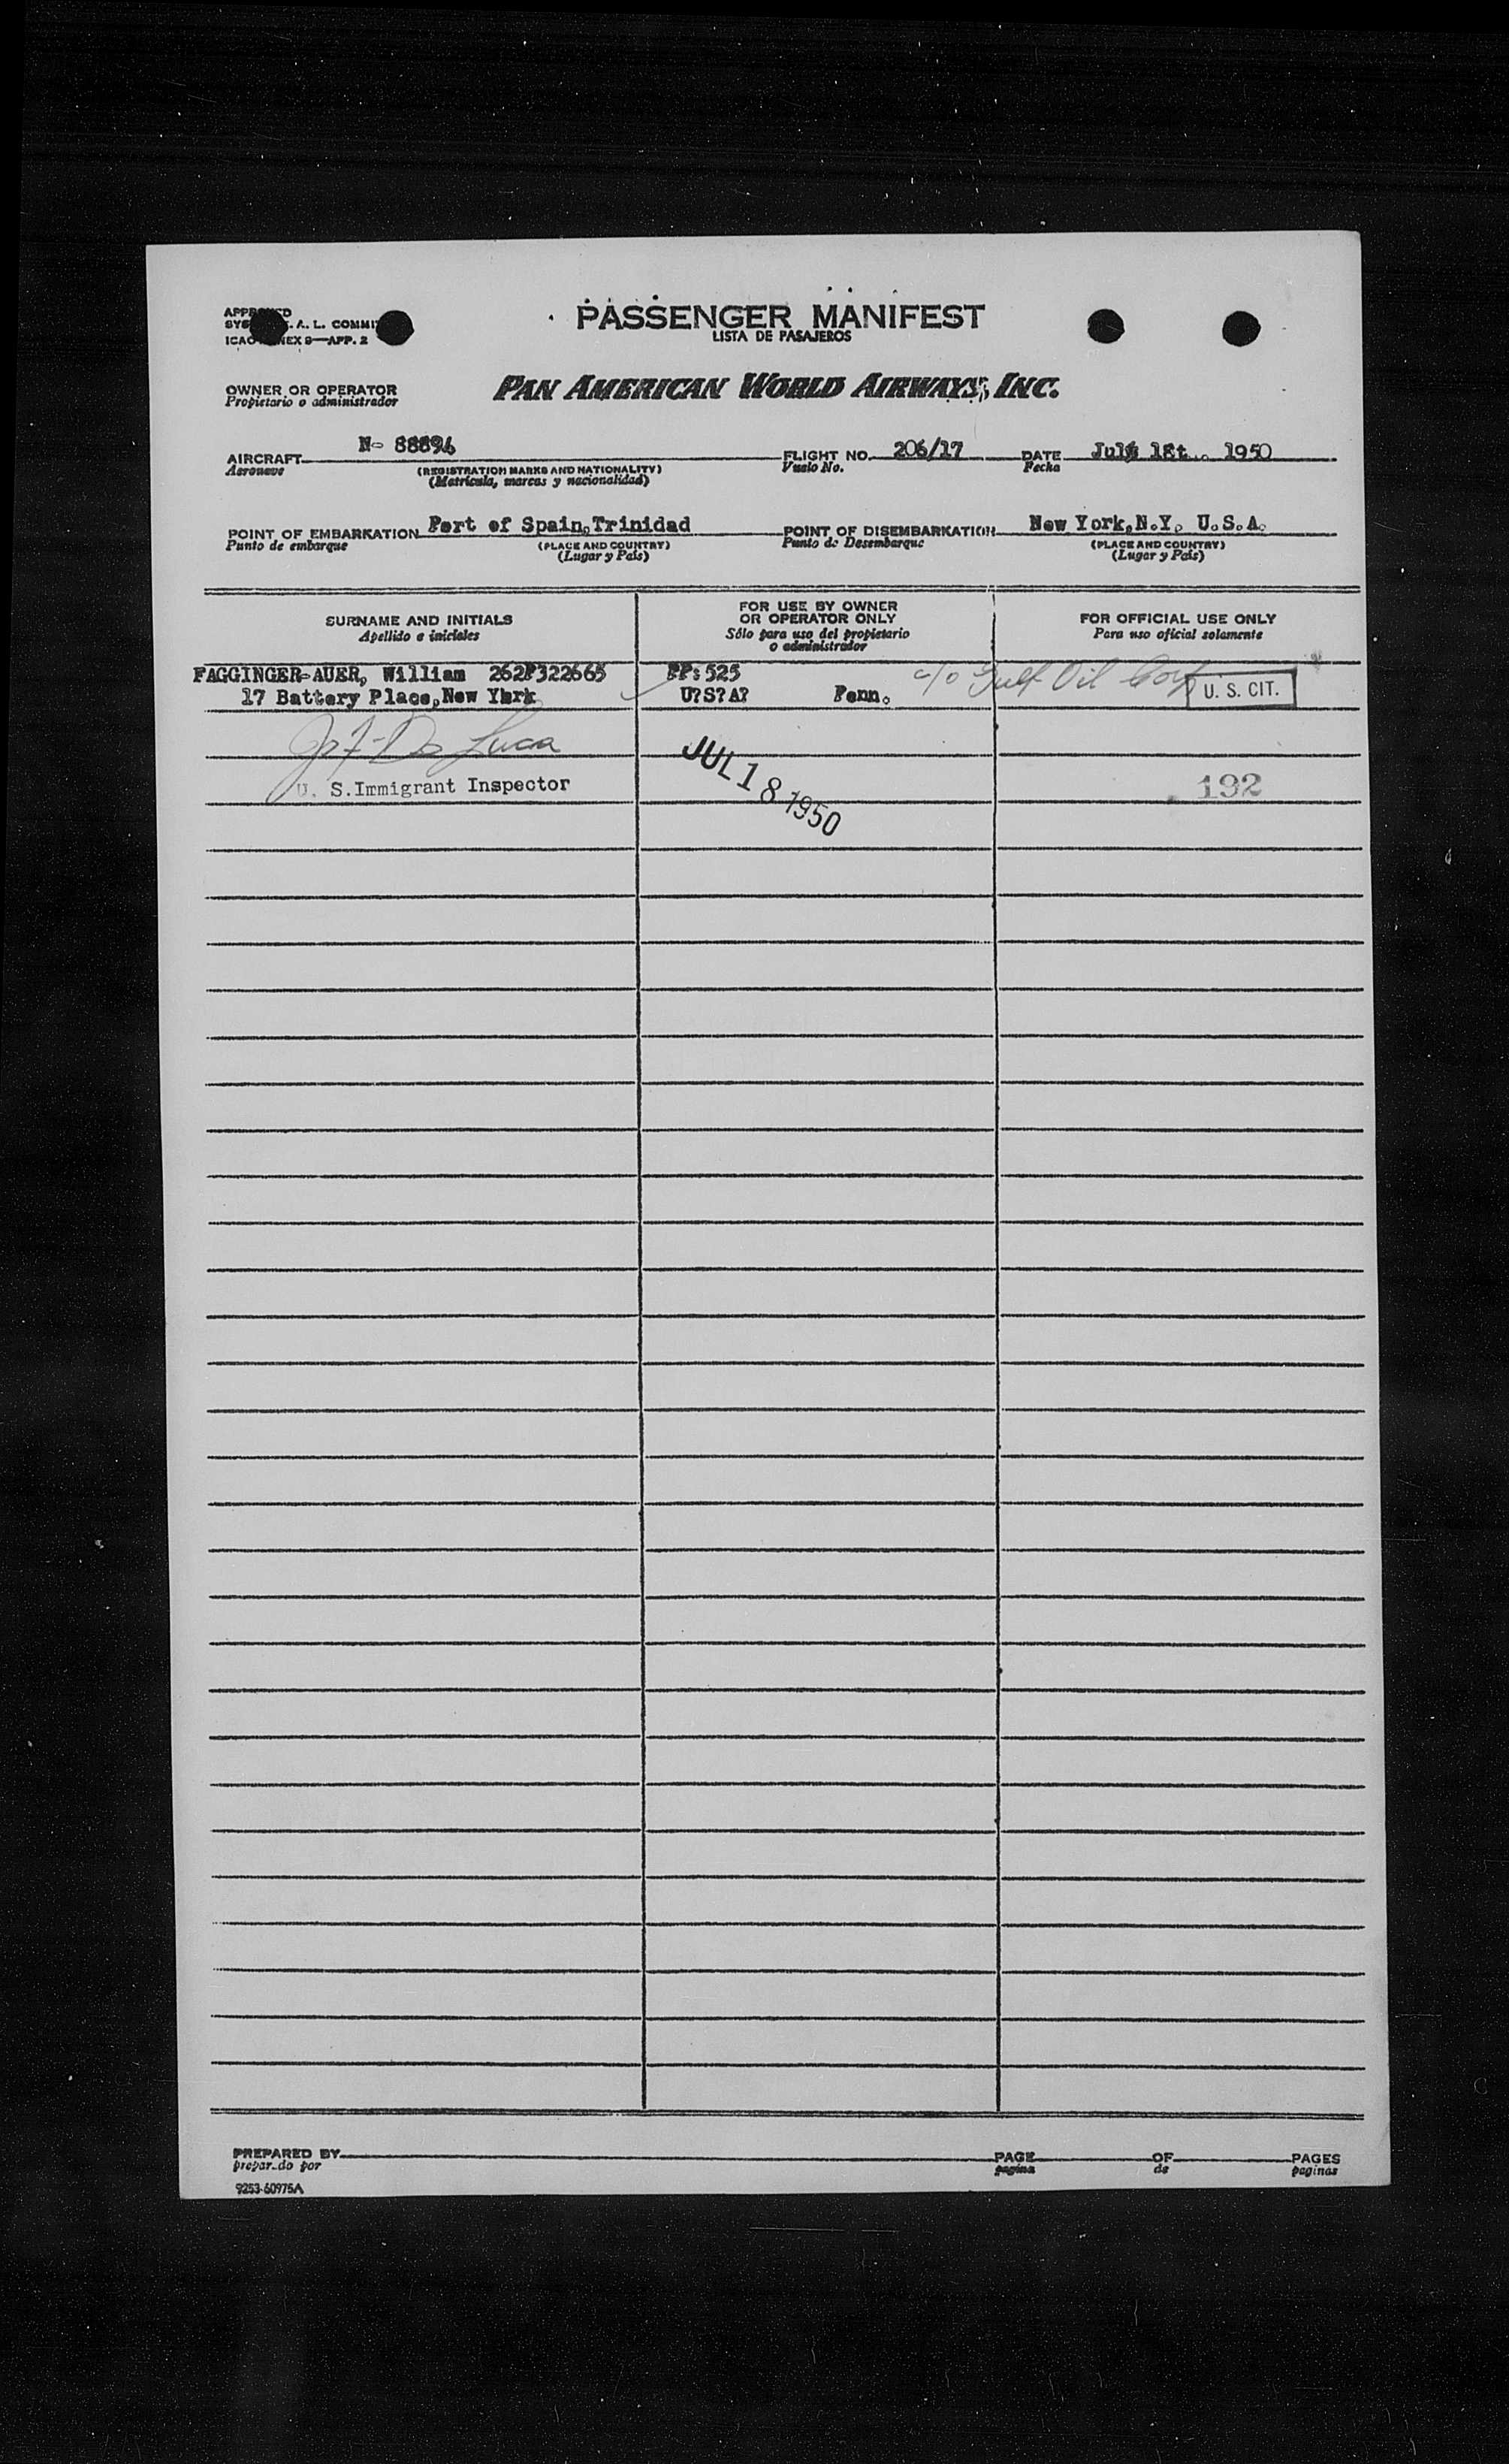 PASSENGER MANIFEST
LISTA DE PASAJEROS
A. L. COMMI
ICAO NEX 9—APP. 2
OWNER OR OPERATOR
Propietario o administrador
PAN AMERICAN WORLD AIRWAYS, INC.
AIRCRAFT N- 88894 FLIGHT NO. 206/17 DATE July 1950
Aeronave (REGISTRATION MARKS AND NATIONALITY) Vuelo No. Fecha
(Matrícula, marcas y nacionalidad)
POINT OF EMBARKATION Port of Spain,Trinidad POINT OF DISEMBARKATION New York,N.Y. U.S.A.
Punto de embarque (PLACE AND COUNTRY) Punto de Desembarque (PLACE AND COUNTRY)
(Lugar y País) (Lugar y País)
SURNAME AND INITIALS
Apellido e iniciales
FOR USE BY OWNER
OR OPERATOR ONLY
Sólo para uso del propietario
o administrador
FOR OFFICIAL USE ONLY
Para uso oficial solamente
FAGGINGER-AUER, William 262P322665 PP: 525 c/o Gulf Oil Corp
17 Battery Place,New York U?S?A? Penn. U. S. CIT.
De Luca
U. S.Immigrant Inspector JUL 18 1950 192
PREPARED BY PAGE OF PAGES
preparado por pagina de paginas
9253-60975A